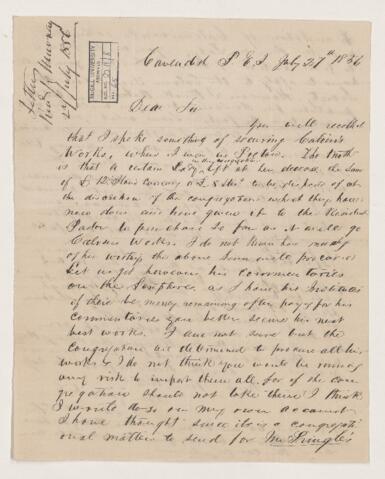 Letter
Isaac Murray
27 July 1856
McGILL UNIVERSITY
ACC. NO.
Cavendish P E I July 27th 1856
Dear Sir
You will recollect
that I spoke something of securing Calvin's
Works, when I was in Pictou. The truth
is that a certain Lady in the congregation left at her decease the Sum
of £ 12 Island Currency to be disposed of at
the discretion of the congregation which they have
now done and have given it to the Resident
Pastor to purchase so far as it will go
Calvins Works. I do not know how many
of his works the above sum will procure
Let us get however his Commentaries
on the Scriptures, as I have his Institutes
if there be money remaining after paying for his
Commentaries you better secure his next
best works. I am not sure but the
Congregation are determined to procure all his
works & I do not think you would be running
any risk to import them all, for if the con-
gregation should not take them I think
I would do so on my own account
I have thought since it is a congregati-
onal matter to send for Mr Pringle's